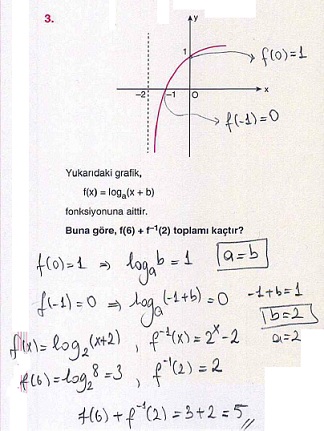 3.
y
1
f(0)=1
-2
-1
0
x
f(-1)=0
Yukarıdaki grafik,
f(x) = logₐ(x + b)
fonksiyonuna aittir.
Buna göre, f(6) + f⁻¹(2) toplamı kaçtır?
f(0)=1 ⇒ logₐb = 1 a=b
f(-1)=0 ⇒ logₐ(-1+b)=0 -1+b=1
b=2
a=2
f(x)=log₂(x+2) , f⁻¹(x)=2ˣ-2
f(6)=log₂8=3 , f⁻¹(2)=2
f(6)+f⁻¹(2)=3+2=5,,